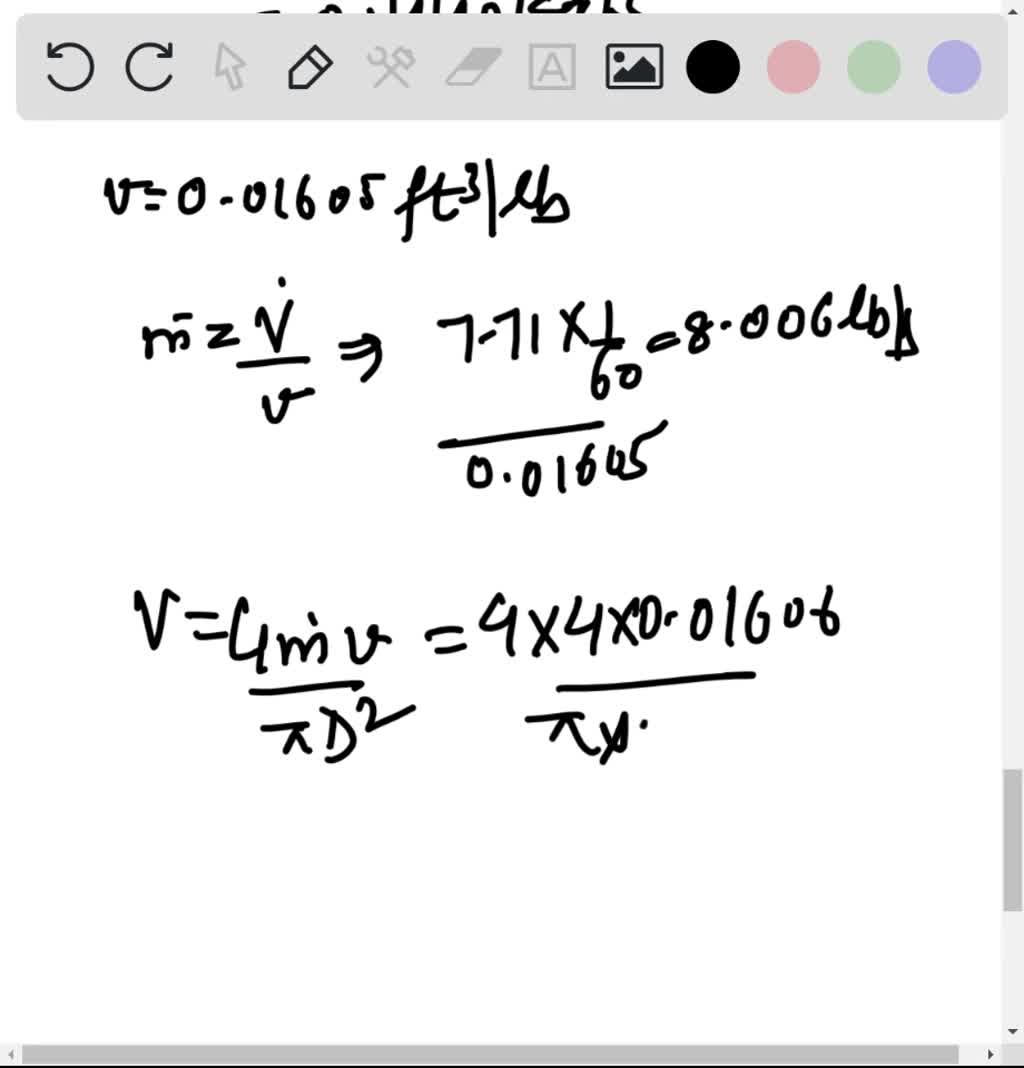 A
v=0.01605 ft³|lb
ṁ = V̇/v ⇒ 7.71 × 1/60 / 0.01605 = 8.006 lb/s
V = 4ṁv/πD² = 4×4×0.01606/π×.